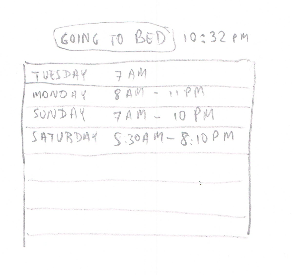 GOING TO BED 10:32 PM
TUESDAY 7 AM
MONDAY 8 AM - 11 PM
SUNDAY 7 AM - 10 PM
SATURDAY 5:30 AM - 8:10 PM